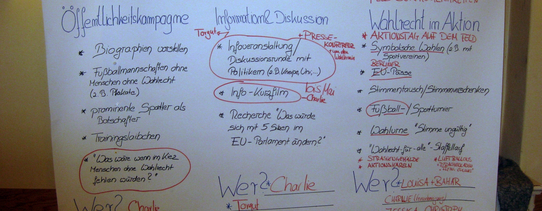 Öffentlichkeitskampagne
* Biographien vorstellen
* Fußballmannschaften ohne
Menschen ohne Wahlrecht
(z.B. Plakate)
* prominente Sportler als
Botschafter
* Trainingsleibchen
* "Was wäre wenn im Kiez
Menschen ohne Wahlrecht
fehlen würden?"
Wer? Charlie
Information & Diskussion
Turgut
+ PRESSE-
KONFERENZ
* Infoveranstaltung/
Diskussionsrunde mit
Politikern
* Info-Kurzfilm
bis Mai
Charlie
* Recherche "Was würde
sich mit 5 Sitzen im
EU-Parlament ändern?"
Wer? Charlie
* Turgut
Wahlrecht im Aktion
* AKTIONSTAG AUF DEM FELD
* Symbolische Wahlen (z.B. mit
Sportvereinen)
BERLINER
EU-Presse
* Stimmentausch/Stimmenverschenken
* Fußball-/Sportturnier
* Wahlurne "Stimme ungültig"
* "Wahlrecht-für-alle"-Staffellauf
Wer? * LOUISA +
CHARLIE
JESSICA CHRISTOPH